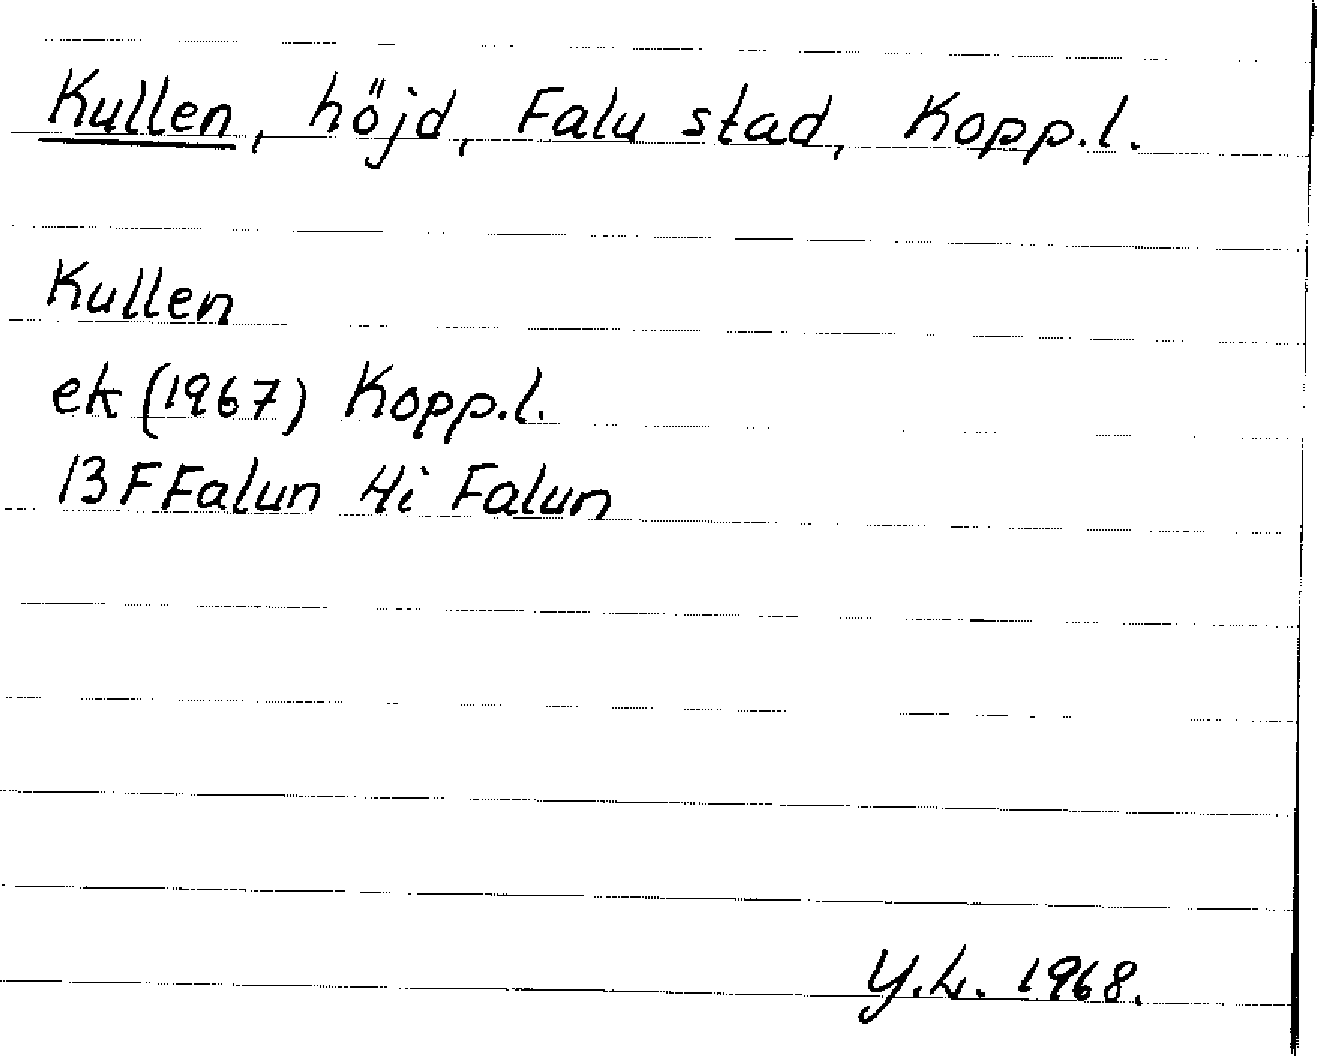 Kullen, höjd, Falu stad, Kopp.l.
Kullen
ek (1967) Kopp.l.
13F Falun 4i Falun
Y.L. 1968.